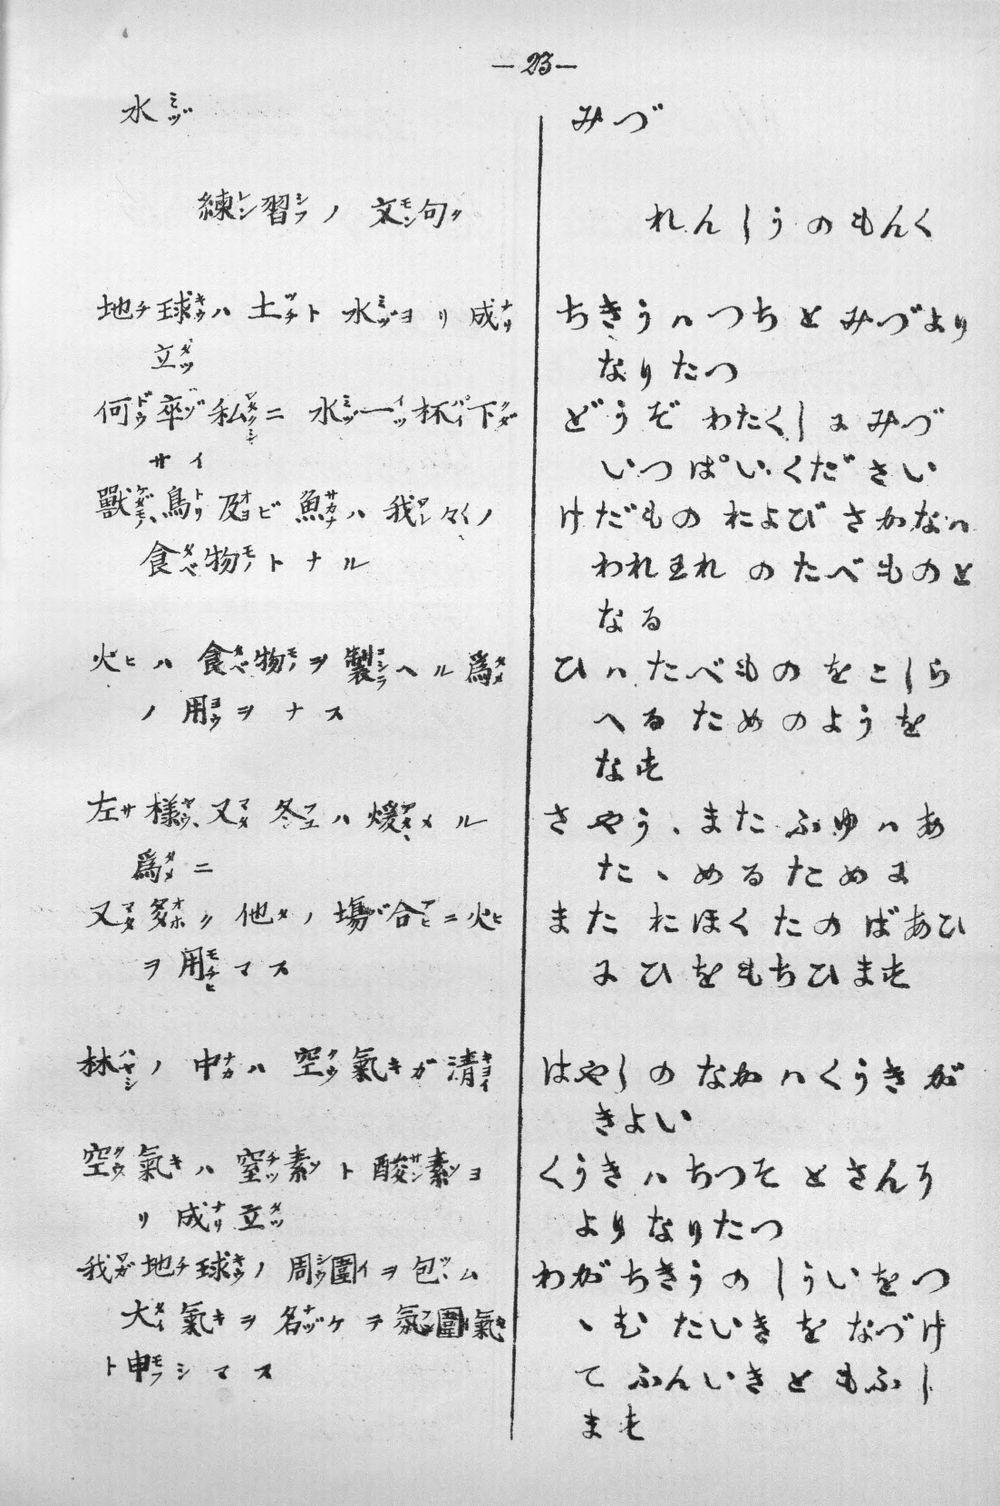 —23—
水ミヅ
練レン習シフノ 文モン句ク
地チ球キウハ 土ツチト 水ミヅヨリ 成ナリ
立タツ
何ドウ卒ゾ 私ワタクシニ 水ミヅ一イツ杯パイ下クダ
サイ
獸ケダモノ、鳥トリ 及オヨビ 魚サカナハ 我ワレ々々ノ
食タベ物モノトナル
火ヒハ 食タベ物モノヲ 製コシラヘル 爲タメ
ノ 用ヨウヲ ナス
左サ樣ヤウ、又マタ 冬フユハ 煖アタヽメル
爲タメニ
又マタ 多オホク 他タノ 塲バ合アヒニ 火ヒ
ヲ 用モチヒマス
林ハヤシノ 中ナカハ 空クウ氣キガ 清キヨイ
空クウ氣キハ 窒チツ素ソト 酸サン素ソヨ
リ 成ナリ立タツ
我ワガ地チ球キウノ 周シウ圍イヲ 包ツヽム
大タイ氣キヲ 名ナヅケテ 氛フン圍イ氣キ
ト申モフシマス
みづ
れんしうのもんく
ちきうハつちとみづより
なりたつ
どうぞ わたくしにみづ
いつぱいください
けだもの およびさかなハ
われわれ のたべものと
なる
ひハたべものをこしら
へるためのようを
なす
さやう、またふゆハあ
たゝめるために
また おほくたのばあひ
にひをもちひます
はやしのなかハくうきが
きよい
くうきハちつそとさんそ
よりなりたつ
わがちきうのしういをつ
ゝむ たいきをなづけ
てふんいきともふし
ます